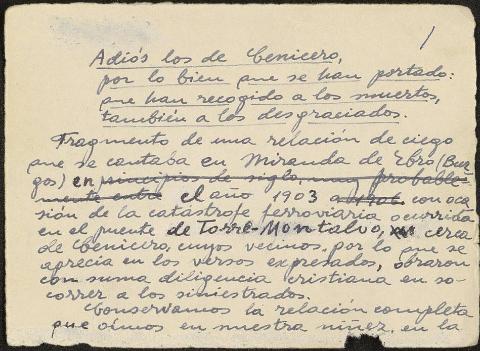 1
Adiós los de Cenicero,
por lo bien que se han portado:
que han recogido a los muertos,
también a los desgraciados.
Fragmento de una relación de ciego
que se cantaba en Miranda de Ebro (Bur-
gos) en principios de siglo, muy probable-
mente entre el año 1903 a 1906, con oca
sión de la catástrofe ferroviaria ocurrida
en el puente de Torre-Montalvo, cerca
de Cenicero, cuyos vecinos, por lo que se
aprecia en los versos expresados, obraron
con suma diligencia cristiana en so-
correr a los siniestrados.
Conservamos la relación completa
que oímos en nuestra niñez, en la